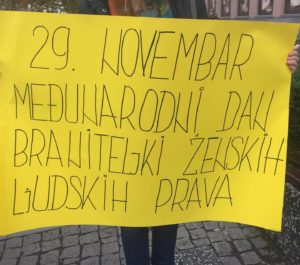 29. NOVEMBAR
MEĐUNARODNI DAN
BRANITELJKI ŽENSKIH
LJUDSKIH PRAVA